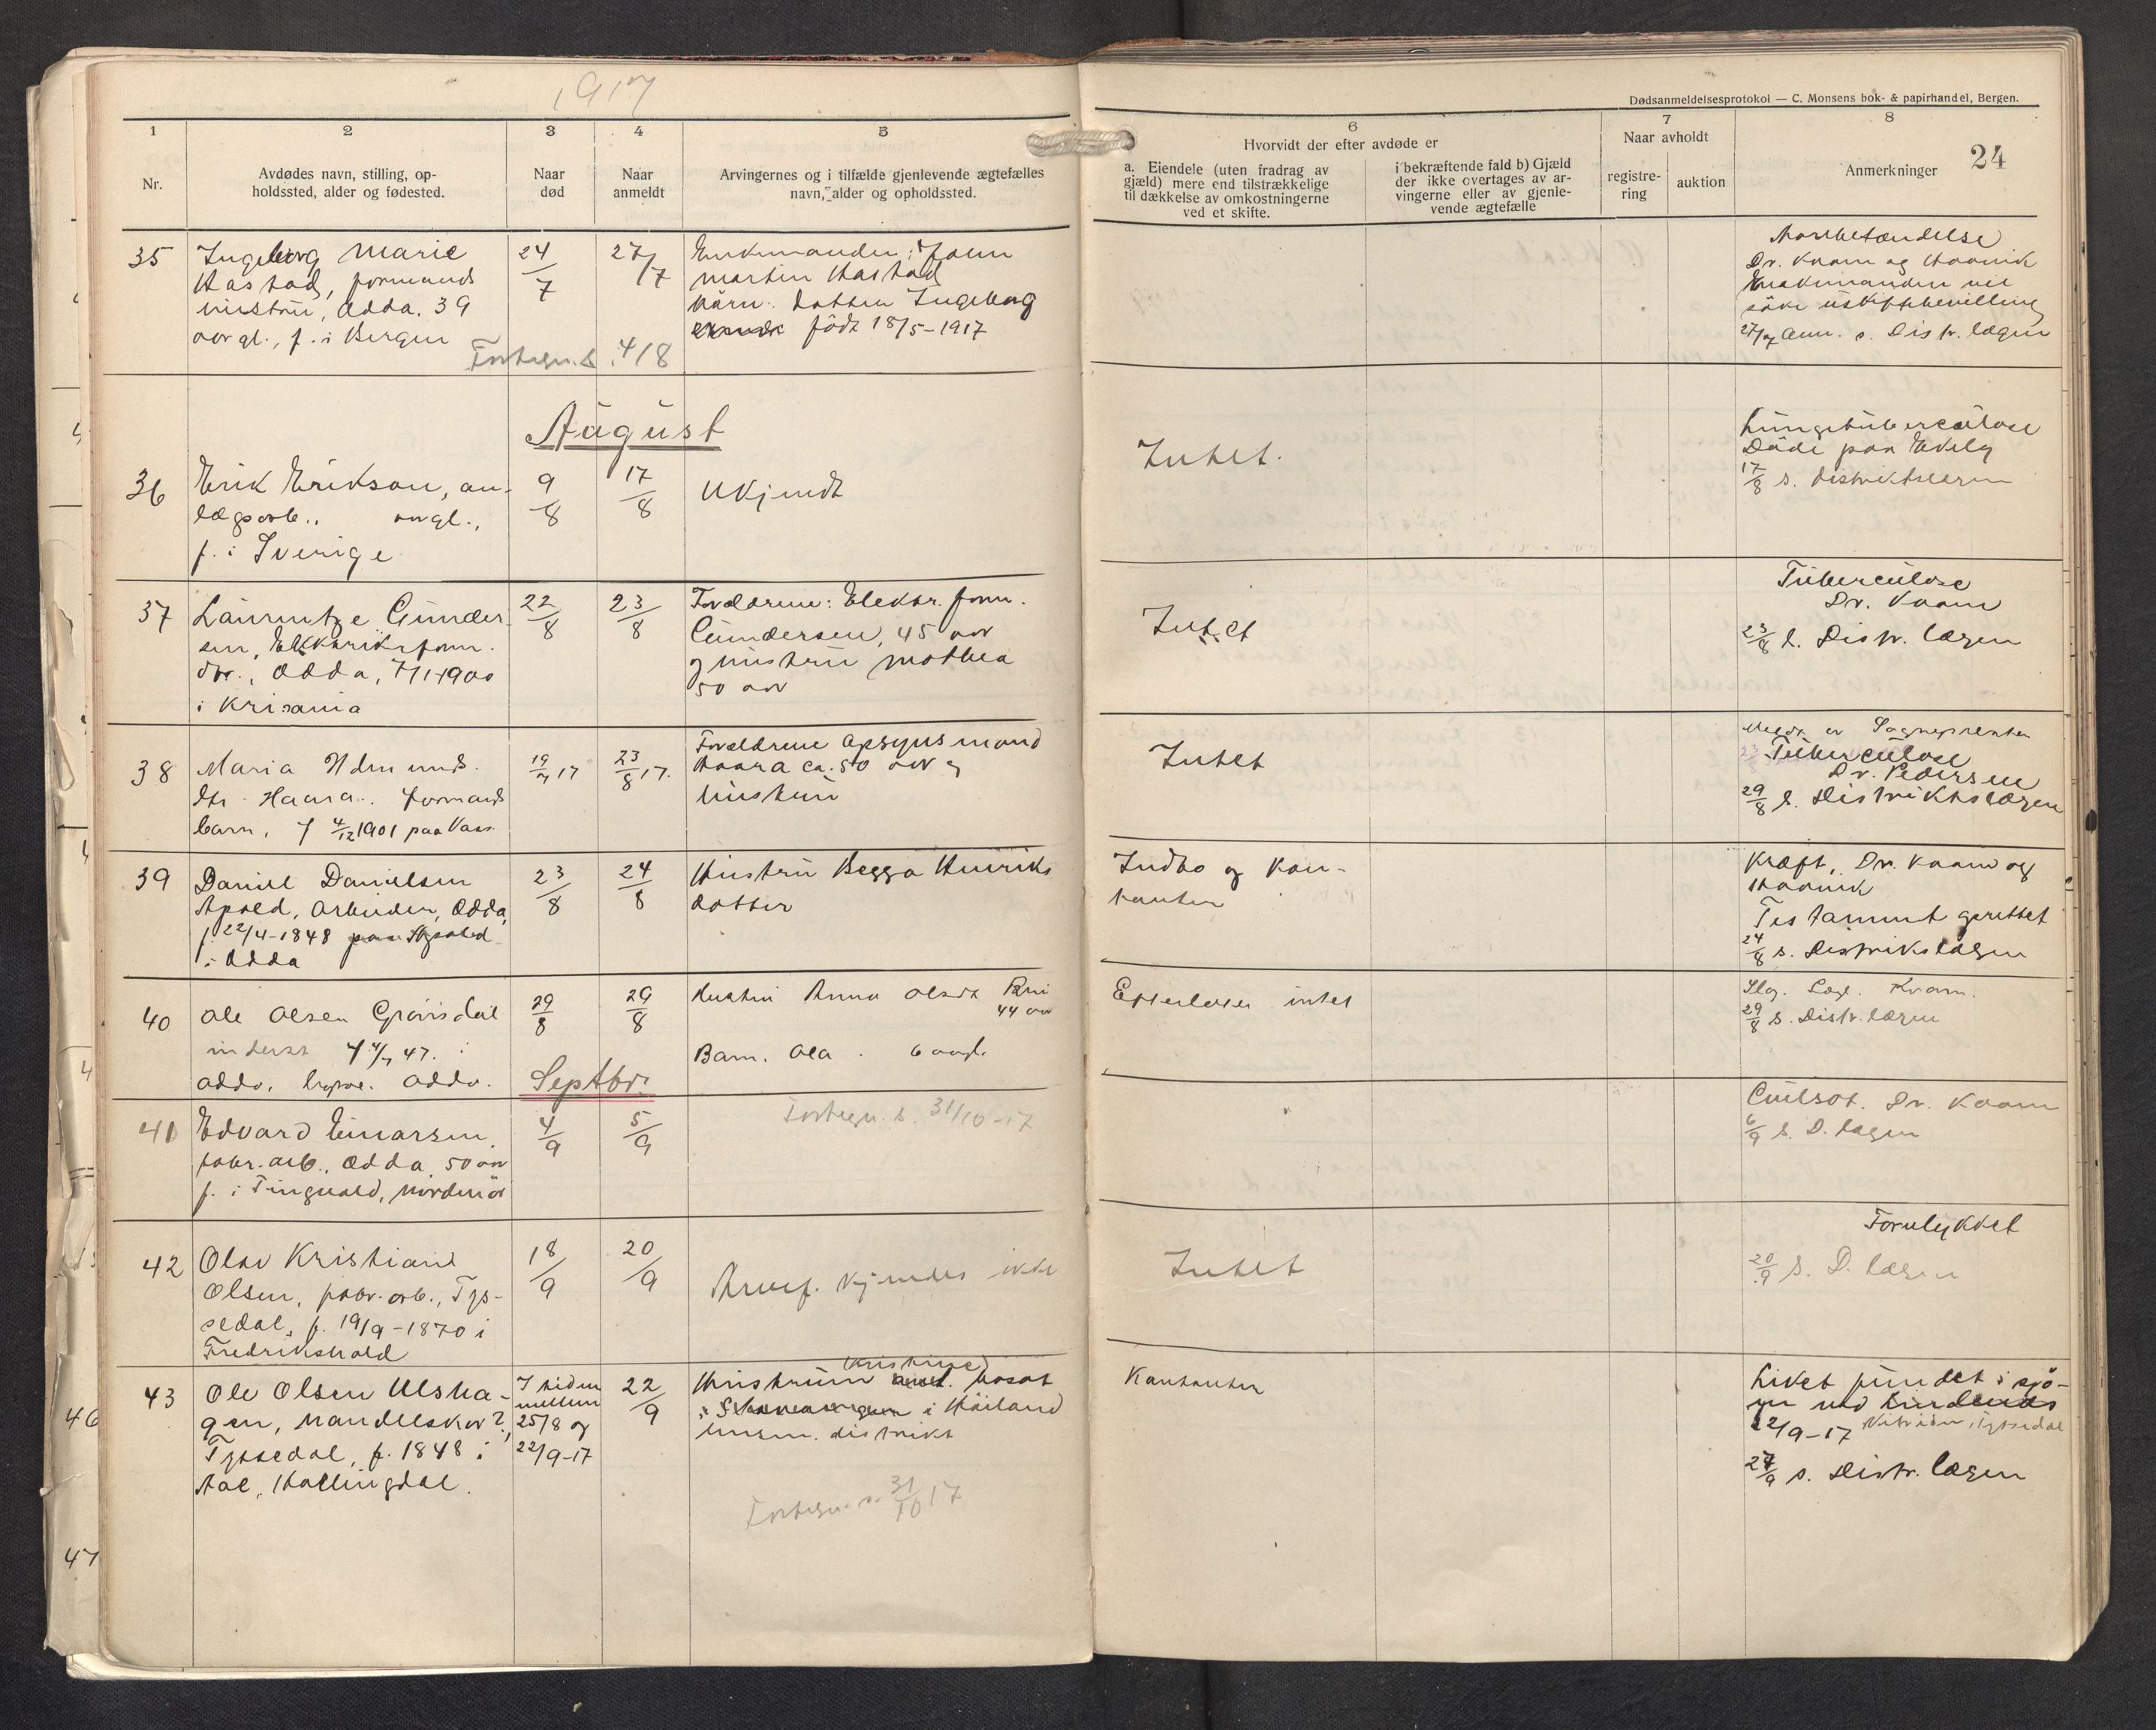 1917
Dødsanmeldelsesprotokol — C. Monsens bok- & papirhandel, Bergen.
24
1
Nr.
2
Avdødes navn, stilling, op-
holdssted, alder og fødested.
3
Naar
død
4
Naar
anmeldt
5
Arvingernes og i tilfælde gjenlevende ægtefælles
navn, alder og opholdssted.
6
Hvorvidt der efter avdøde er
a. Eiendele (uten fradrag av
gjæld) mere end tilstrækkelige
til dækkelse av omkostningerne
ved et skifte.
i bekræftende fald b) Gjæld
der ikke overtages av ar-
vingerne eller av gjenle-
vende ægtefælle
7
Naar avholdt
registre-
ring
auktion
8
Anmerkninger
35
Ingeborg Marie
Hastad, formands
hustru, Odda. 39
aar gl., f. i Bergen
24/7
27/7
Enkemanden: John
Martin Hastad
Barn: datter Ingeborg
født 18/5-1917
Fortegn. s. 4/8
Dr. Kaam og Haavik
Enkemanden vil
søke uskiftebevilling
27/7 Anm. s. Distr. lægen
August
36
Erik Erikson, an-
lægsarb., aar gl.,
f. i Sverige
9/8
17/8
Ukjendt
Intet.
Lungetuberculose
Døde paa Ekely
17/8 s. Distriktslægen
37
Laurentze Gunder-
sen, Elektrikerform.
dtr., Odda, 7/1-1900
i Kristiania
22/8
23/8
Forældrene: Elektr. form.
Gundersen, 45 aar
og hustru Mathea
50 aar
Intet
Tuberculose
Dr. Kaam
23/8 s. Distr. lægen
38
Maria Hdmunds.
dtr. Haara. formands
barn, f 4/12 1901 paa Voss
19/7 17
23/8 17.
Forældrene Opsynsmand
Haara ca. 50 aar og
hustru
Intet
Meldt av Sognepresten
Tuberculose
Dr. Pedersen
29/8 s. Distriktslægen
39
Daniel Danielsen
Apold, Arbeider, Odda,
f. 22/4-1848 paa Apold
i Odda
23/8
24/8
Hustru Begga Henriks
datter
Indbo og Kon-
tanter
Kræft, Dr. Kaam og
Haavik
Testament oprettet
24/8 s. Distriktslægen
40
Ole Olsen Grønsdal
inderst f 4/7 47. i
Odda, Odda.
29/8
29/8
Hustru Anna Olsdt
44 aar
Barn. Ola. 6 aar gl.
Efterlater intet
Slag. Læge. Kvam.
29/8 s. Distr. lægen
Septbr.
41
Edvard Einarsen,
fabr. arb., Odda, 50 aar
f. i Tingvold, Nordmør
4/9
5/9
Fortegn. s. 31/10-17
Gulsot. Dr. Kaam
6/9 s. D. lægen
42
Olav Kristian
Olsen, fabr. arb., Tys-
sedal, f. 19/9-1870 i
Fredrikshald
18/9
20/9
Arvef. kjendes ikke
Intet
Forulykket
20/9 s. D. lægen
43
Ole Olsen Ulsha-
gen, Handelskar?,
Tyssedal, f. 1848 i
Aal, Hallingdal.
I tiden
mellem
25/8 og
22/9-17
22/9
(Kristine)
Hustruen bosat
i Høiland
lensm. distrikt
Fortegn. s. 31/10 17
Kontanter
Liket fundet i sjø-
en ved
22/9-17 Tyssedal
27/9 s. Distr. lægen
46
47